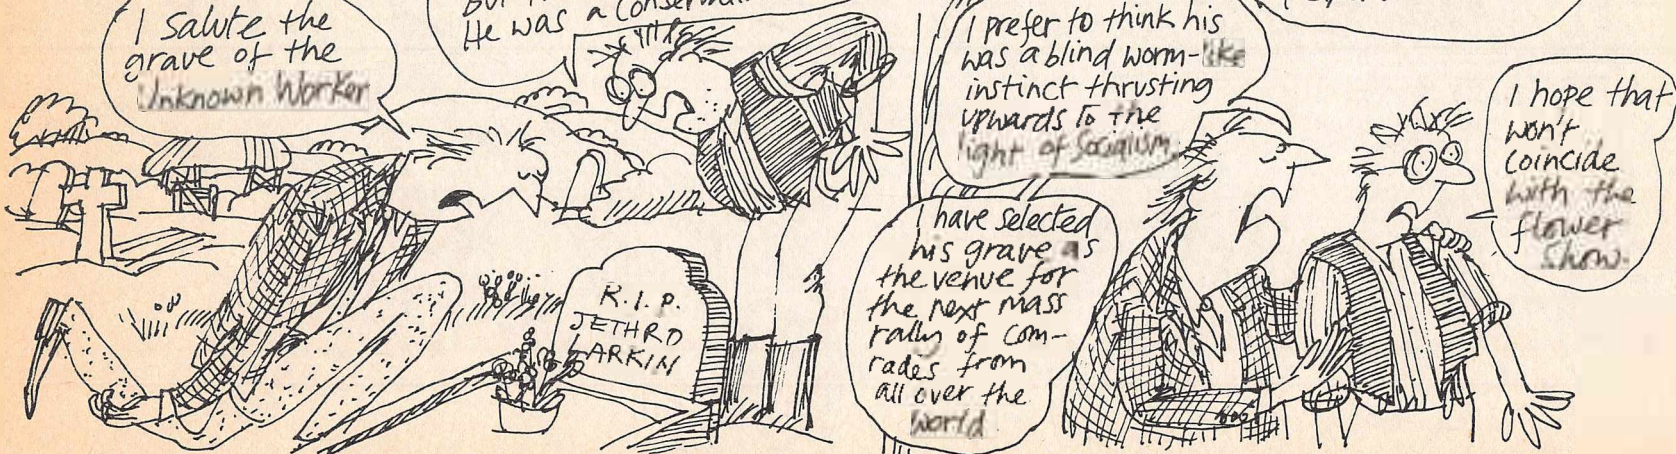 I salute the
grave of the
Unknown Worker
He was a
R.I.P.
JETHRO
LARKIN
I prefer to think his
was a blind worm-like
instinct thrusting
upwards to the
light of Socialism.
I have selected
his grave as
the venue for
the next mass
rally of com-
rades from
all over the
world
I hope that
won't
coincide
with the
flower
show.